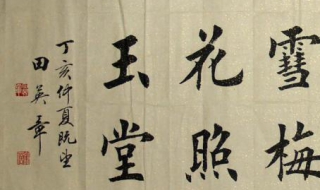 雪梅
花照
玉堂
丁亥仲夏既望
田英章